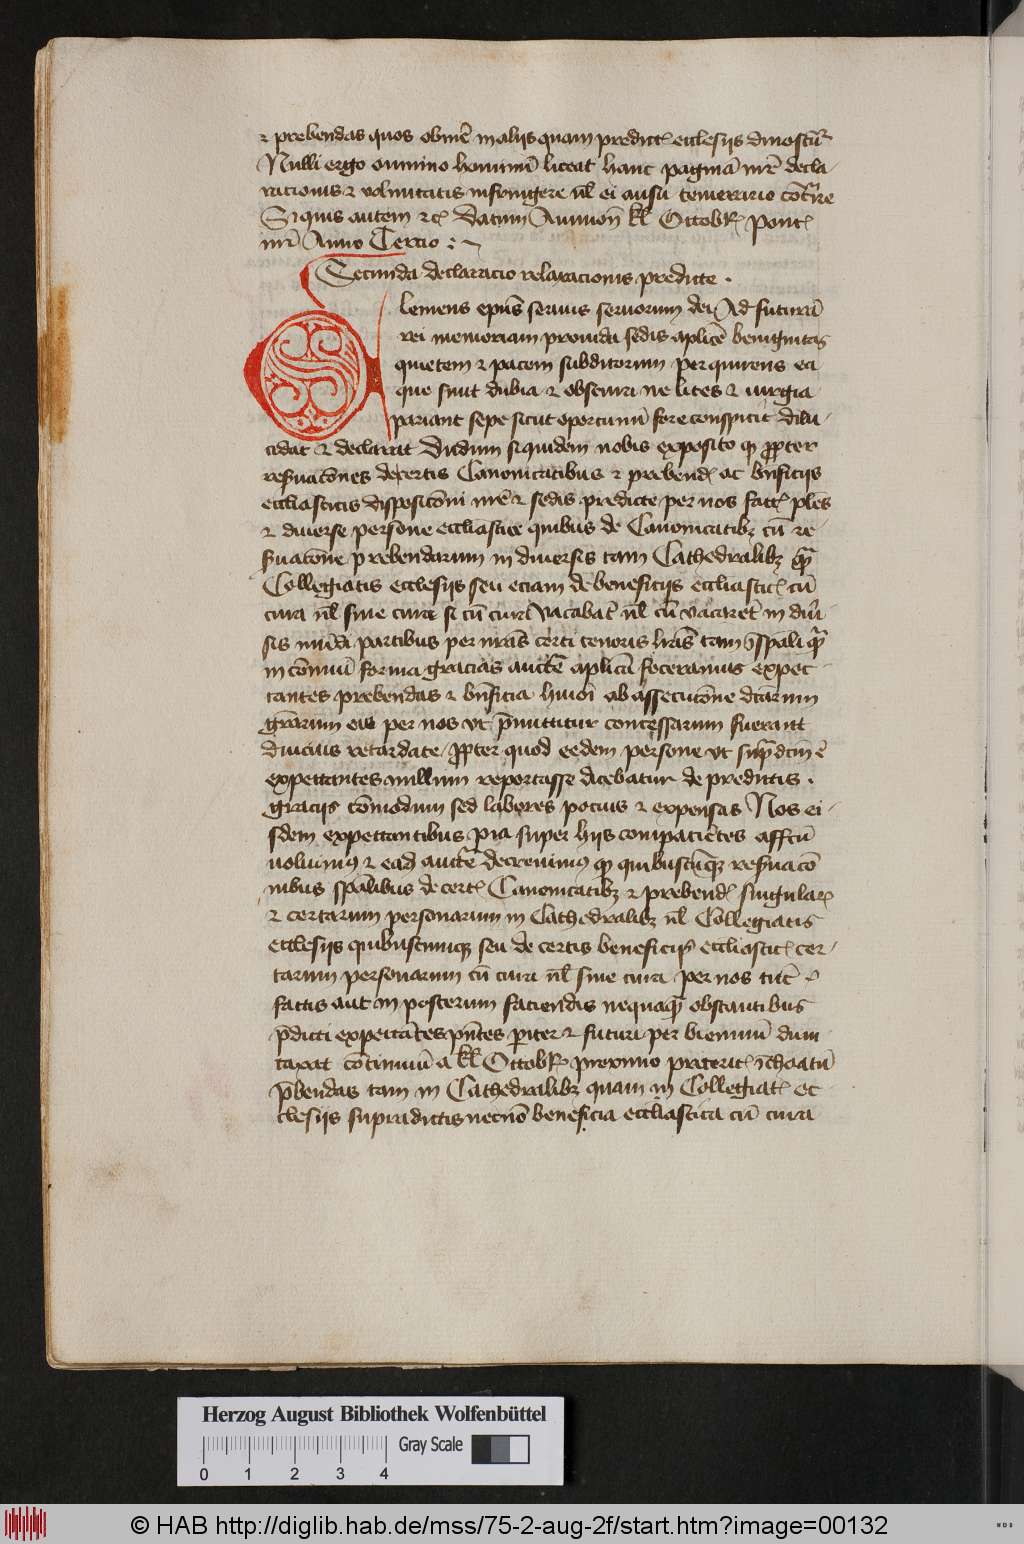 ⁊ prebendas quos obinet͛ in aliis quam predict͛ ecclesiis dinoscūt͛
Nulli ergo omnino hominū liceat hanc paginā nr̄e decla-
racionis ⁊ volūtatis infringere ul̄ ei ausu temerario cōt͛ire
Si quis autem ⁊c̄ Datum Avinion̄ kl̄ Octobr͛ pont͛
nr̄i Anno Tercio :~
Secunda declaracio relaxacionis predicte .
Clemens ep̄us servus servorum dei Ad futurā
rei memoriam provida sedis aplicē benignitas
quietem ⁊ pacem subditorum perquirens ea
que sunt dubia ⁊ obscura ne lites ⁊ iurgia
pariant sepe sicut oportunū fore conspicit dilu-
cidat ⁊ declarat Dudum siquidem nobis exposito ꝙ ꝓpter
reſuatōnes de certis Canonicatibus ⁊ prebend͛ ac bn̄ficiis
eccl̄iasticis dispositōni nr̄e ⁊ sedis predicte per nos fact͛ plēs
⁊ diverse persone eccl̄iastice quibus de Canonicatibꝫ cū re-
ſuatōne prebendarum in diversis tam Cathedralibꝫ q̄̃
Collegiatis ecclesiis seu eciam de beneficiis eccl̄iastic͛ cū
cura ul̄ sine cura si tūc vacabāt ul̄ cū vacarēt in div͛
sis mūdi partibus per nr̄as certi tenoris lr̄as tam ī spāli q̄̃
in cōmuni forma gracias auctē aplica feceramus expec-
tantes prebendas ⁊ bn̄ficia huiōi ab assecutōne dictarum
grārum eis per nos vt p̄mittitur concessarum fuerant
diucius retardate ꝓpter quod eedem persone vt sup̄dcm̄ ē
expectantes nullum reportasse dicebatur de predictis .
graciis cōmodum sed labores pocius ⁊ expensas Nos ei-
sdem expectantibus pia super hiis compacientes affcū
volumus ⁊ eadē auctē decrevimus ꝙ quibuscūqꝫ reſuatō
nibus spālibus de cert͛ Canonicatibꝫ ⁊ prebend͛ singular͛
⁊ certarum personarum in Cathedralibꝫ ul̄ Collegiatis
ecclesiis quibuscumqꝫ seu de certis beneficiis eccl̄iastic͛ cer-
tarum personarum cū cura ul̄ sine cura per nos tūc
factis aut in posterum faciendis nequaq̄̃ obstantibus
p̄dicti expectātes p̄ntes pariter ⁊ futuri per biennium dum-
taxat cōtinuū a kl̄ Octobr͛ proximo preterit͛ īchoatū
p̄bendas tam in Cathedralibꝫ quam in Collegiat͛ ec-
clesiis supradictis necnō beneficia eccl̄iastica cū cura
Herzog August Bibliothek Wolfenbüttel
Gray Scale
0 1 2 3 4
© HAB http://diglib.hab.de/mss/75-2-aug-2f/start.htm?image=00132